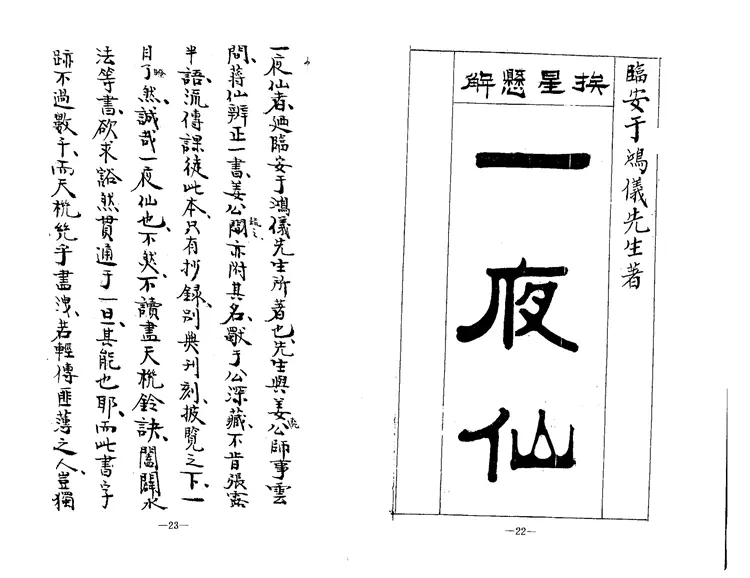 臨安于鴻儀先生著
挨星懸解
一夜仙
—22—
一夜仙者、廼臨安于鴻儀先生所著也、先生與姜公師事雲
間、蔣仙辨正一書、姜公闡亦附其名、獻于公深藏、不肯張露
半語、流傳課徒此本、只有抄錄、別無刊刻、披覽之下、一
目了瞭然、誠哉一夜仙也、不然、不讀盡天機鈐訣、闔闢水
法等書、欲求豁然貫通于一旦、其能也耶、而此書字
跡不過數千、而天機幾乎盡洩、若輕傳匪薄之人、豈獨
—23—